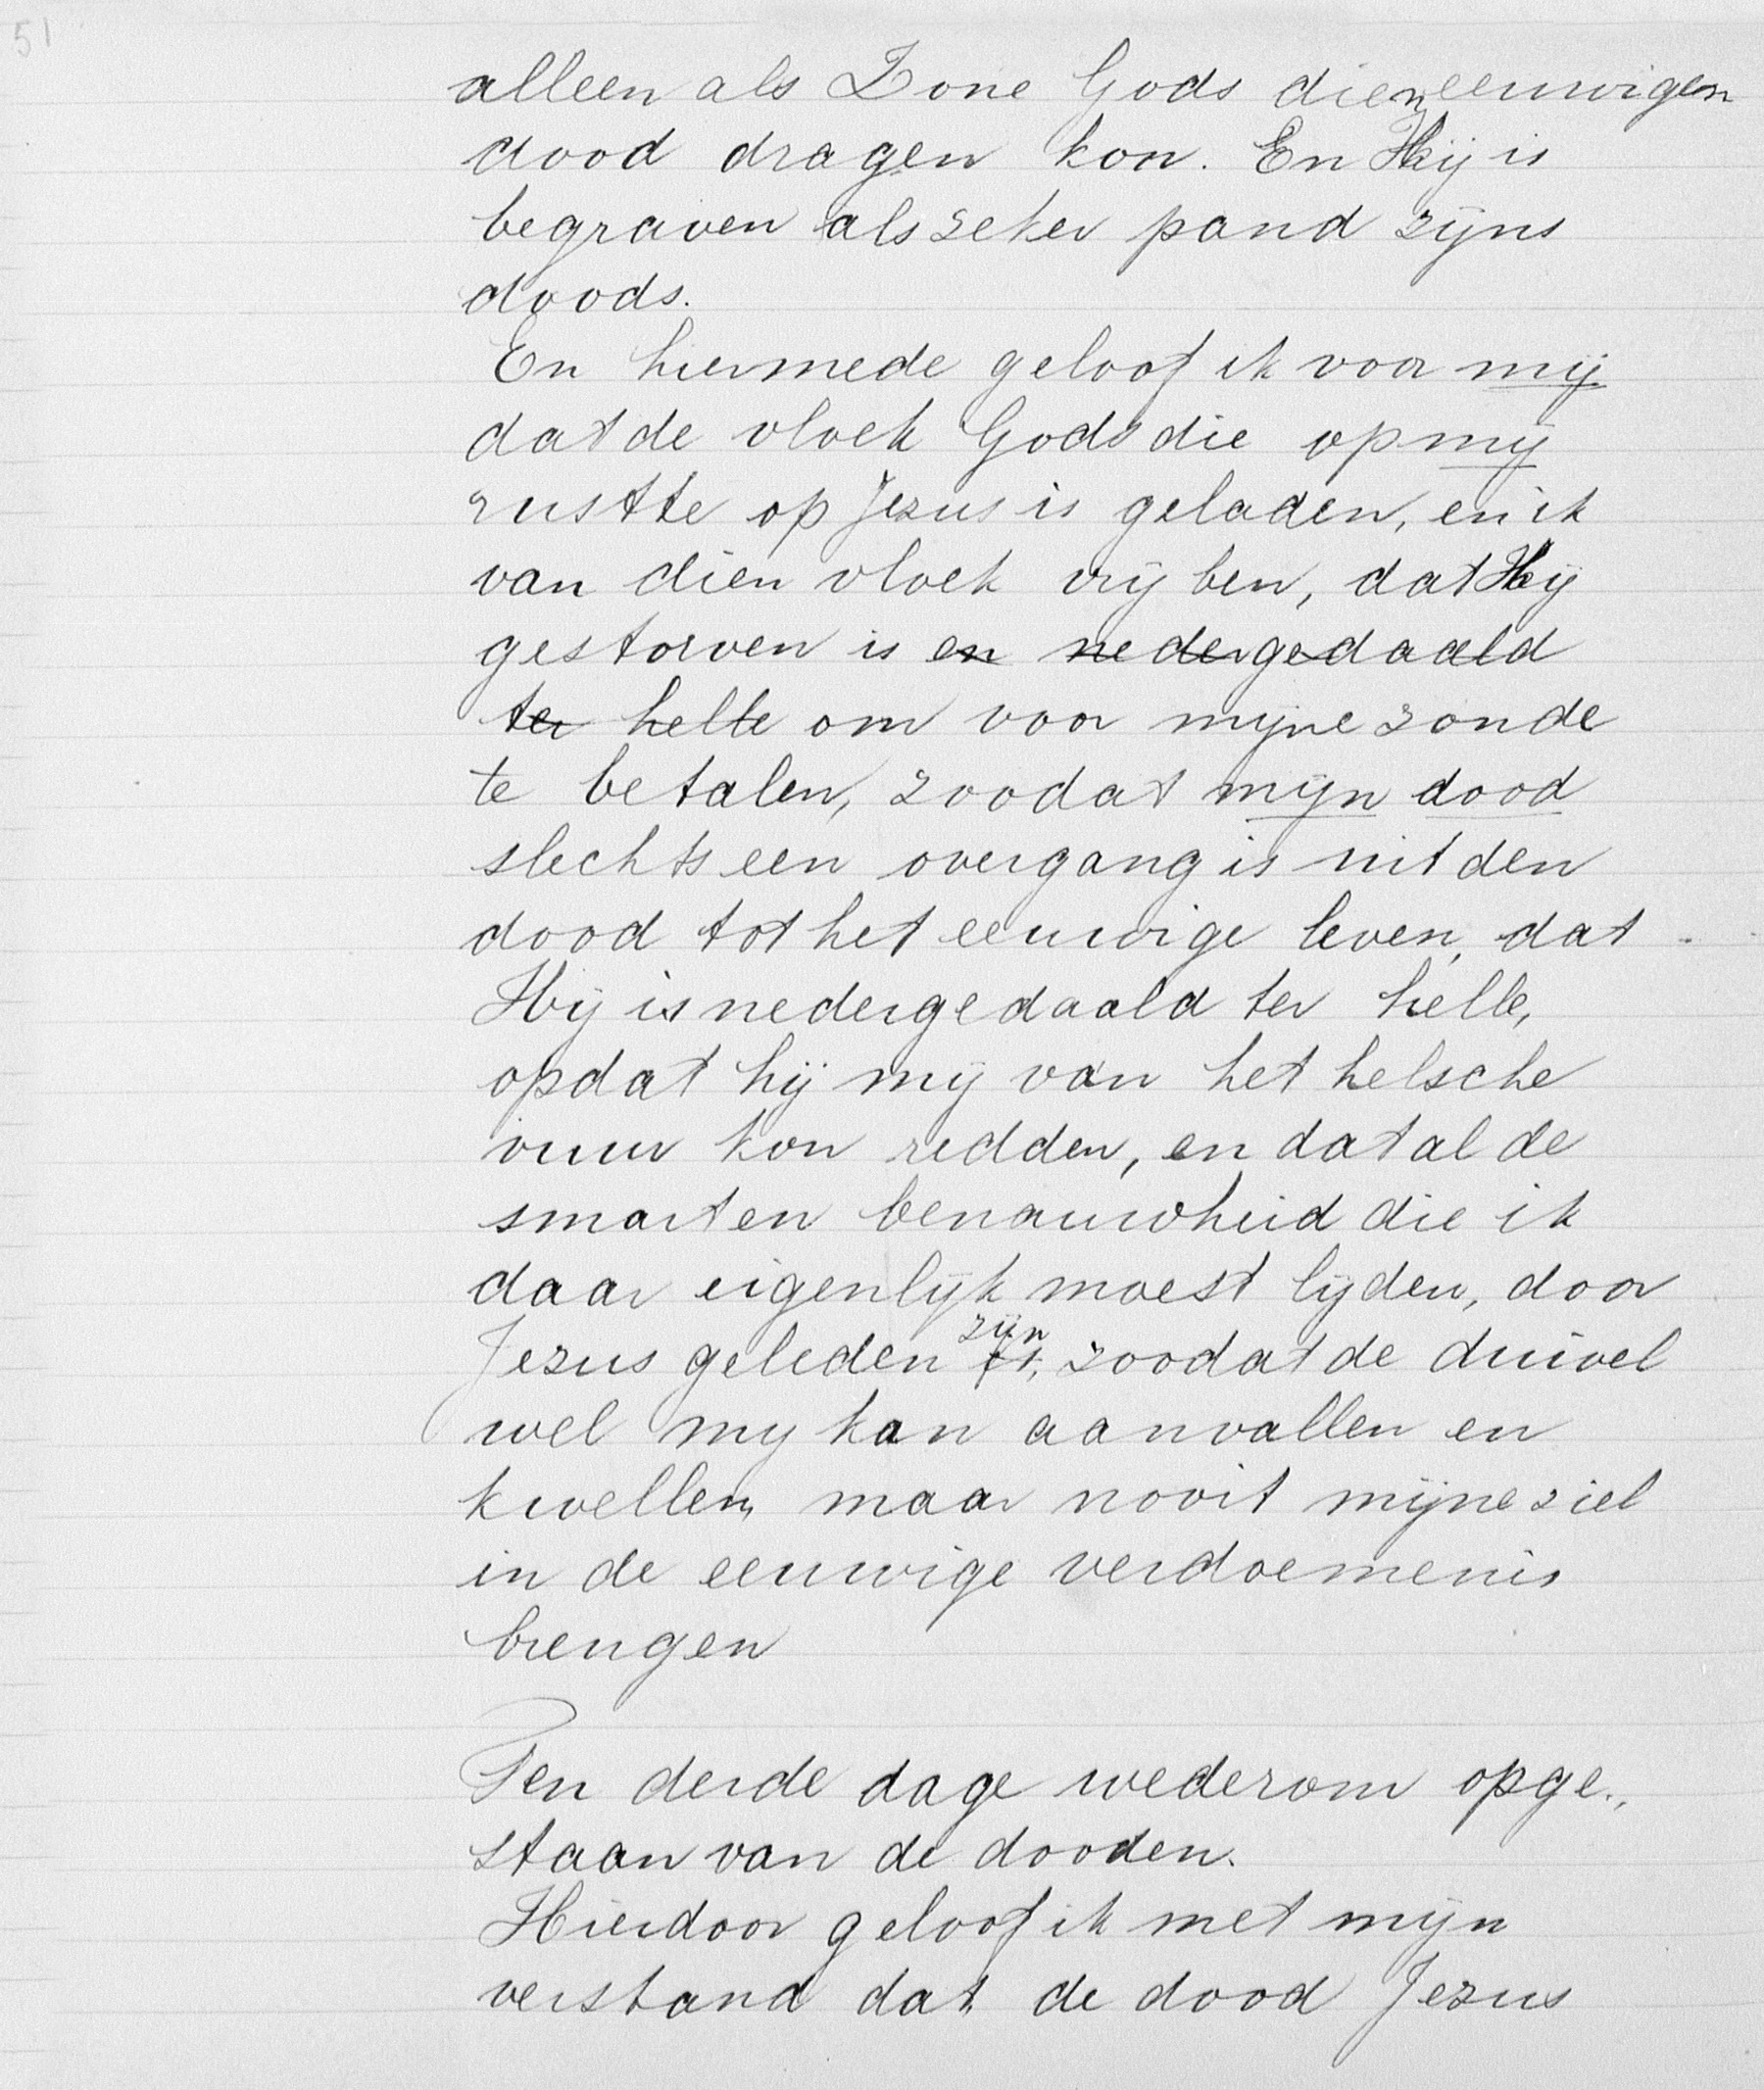 51
alleen als Zone Gods dien eeuwigen
dood dragen kon. En Hij is
begraven als zeker pand zijns
doods.
En hiermede geloof ik voor mij
dat de vloek Gods die op mij
rustte op Jezus is geladen, en ik
van dien vloek vrij ben, dat Hij
gestorven is en nedergedaald
ter helle om voor mijne zonde
te betalen, zoodat mijn dood
slechts een overgang is uit den
dood tot het eeuwige leven, dat
Hij is nedergedaald ter helle,
opdat hij mij van het helsche
vuur kon redden, en dat al de
smart en benauwheid die ik
daar eigenlijk moest lijden, door
Jezus geleden is, zijn zoodat de duivel
wel mij kan aanvallen en
kwellen, maar nooit mijne ziel
in de eeuwige verdoemenis
brengen
Ten derde dage wederom opge-
staan van de dooden.
Hierdoor geloof ik met mijn
verstand dat de dood Jezus